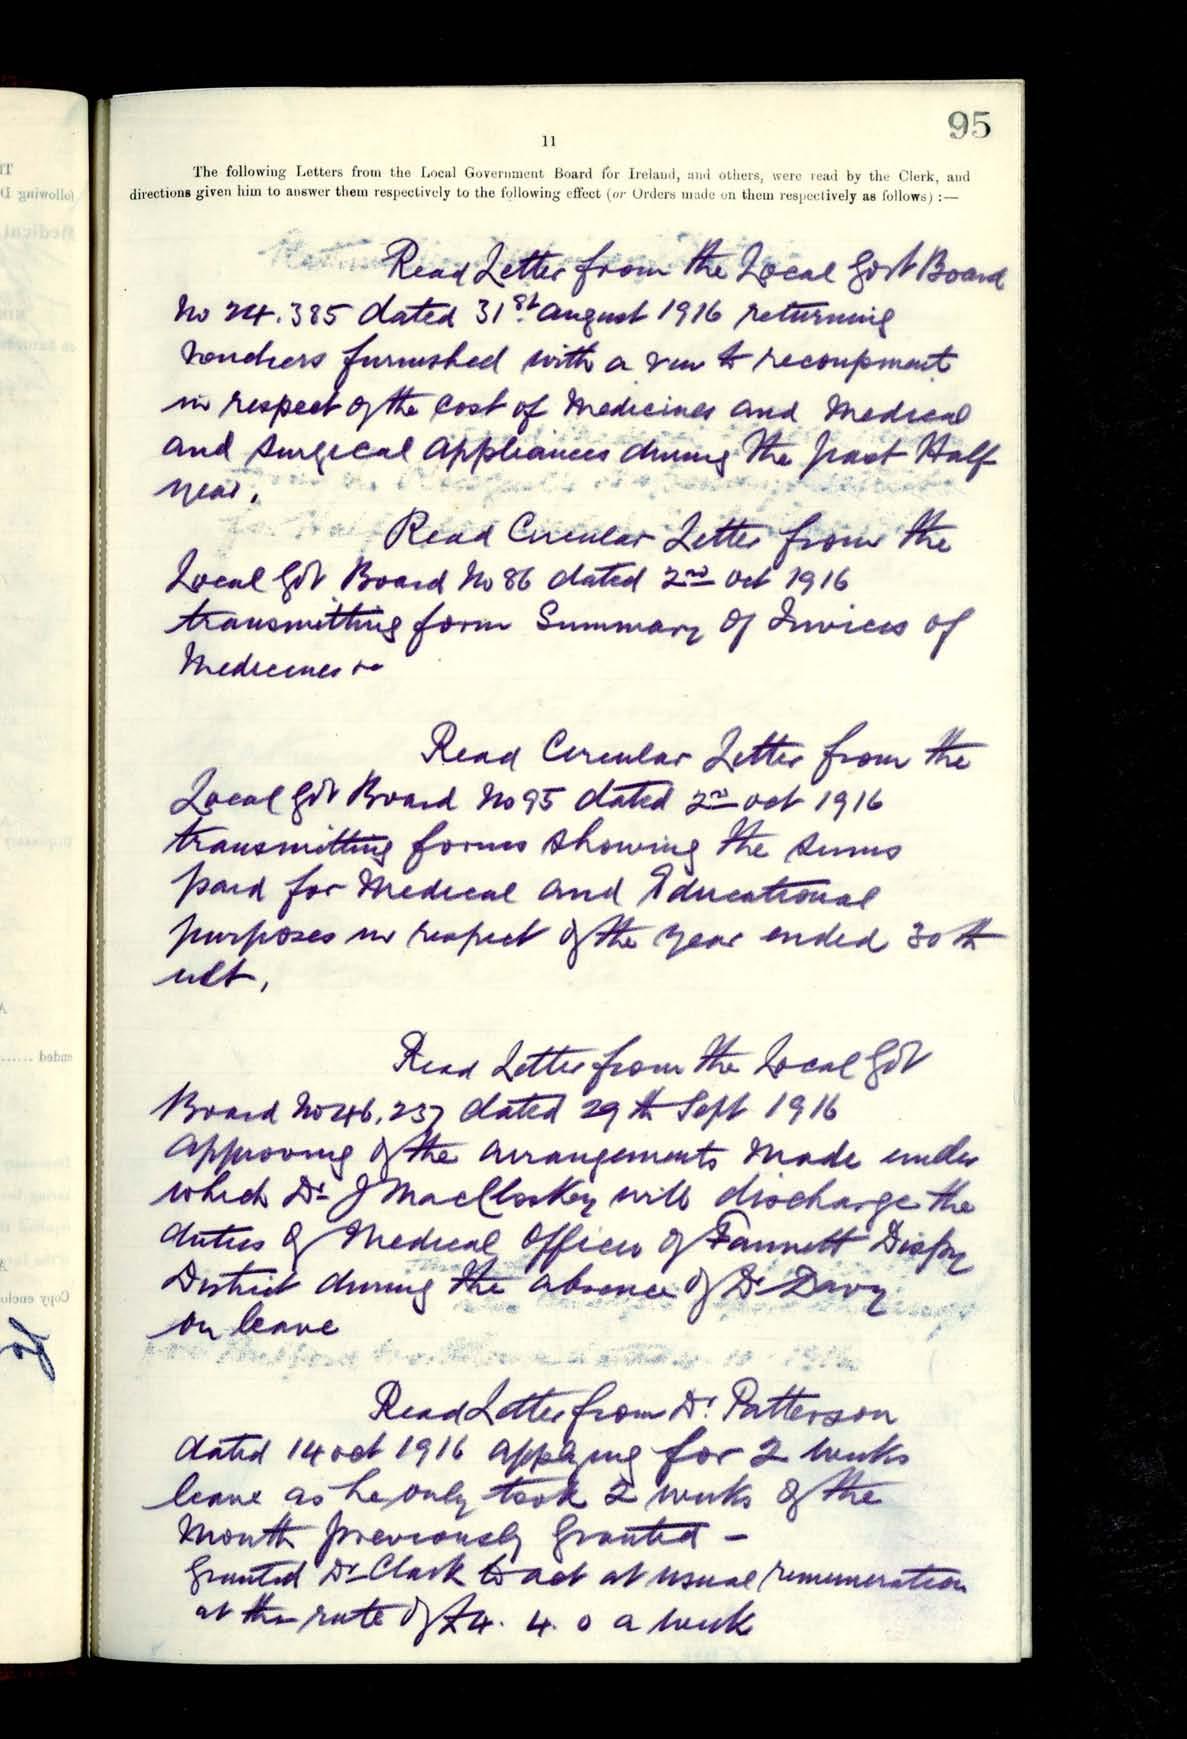 95
11
The following Letters from the Local Government Board for Ireland, and others, were read by the Clerk, and
directions given him to answer them respectively to the following effect (or Orders made on them respectively as follows) :—
Read Letter from the Local Govt Board
No 24.385 dated 31st August 1916 returning
Vouchers furnished with a view to recoupment
in respect of the cost of Medicines and Medical
and Surgical Appliances during the past Half
year.
Read Circular Letter from the
Local Govt Board No 86 dated 2nd Oct 1916
transmitting form Summary of Invices of
Medicines &c
Read Circular Letter from the
Local Govt Board No 95 dated 2nd Oct 1916
transmitting forms showing the sums
paid for Medical and Educational
purposes in respect of the year ended 30th
ult.
Read Letter from the Local Govt
Board No 46.237 dated 29th Sept 1916
approving of the arrangements made under
which Dr J MacCloskey will discharge the
duties of Medical Officer of Fannett Dispy
District during the absence of Dr Davy
on leave
Read Letter from Dr. Patterson
dated 14 Oct 1916 applying for 2 weeks
leave as he only took 2 weeks of the
Month previously granted –
Granted Dr Clark to act at usual remuneration
at the rate of £4. 4. 0 a week